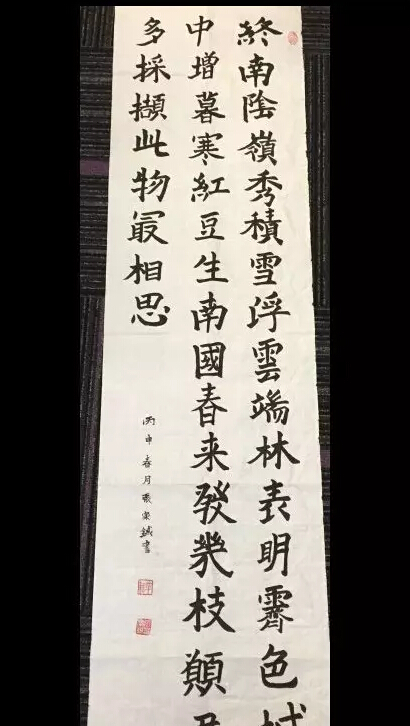 終南陰嶺秀積雪浮雲端林表明霽色城
中增暮寒紅豆生南國春来發幾枝願君
多採擷此物最相思
丙申春月張書